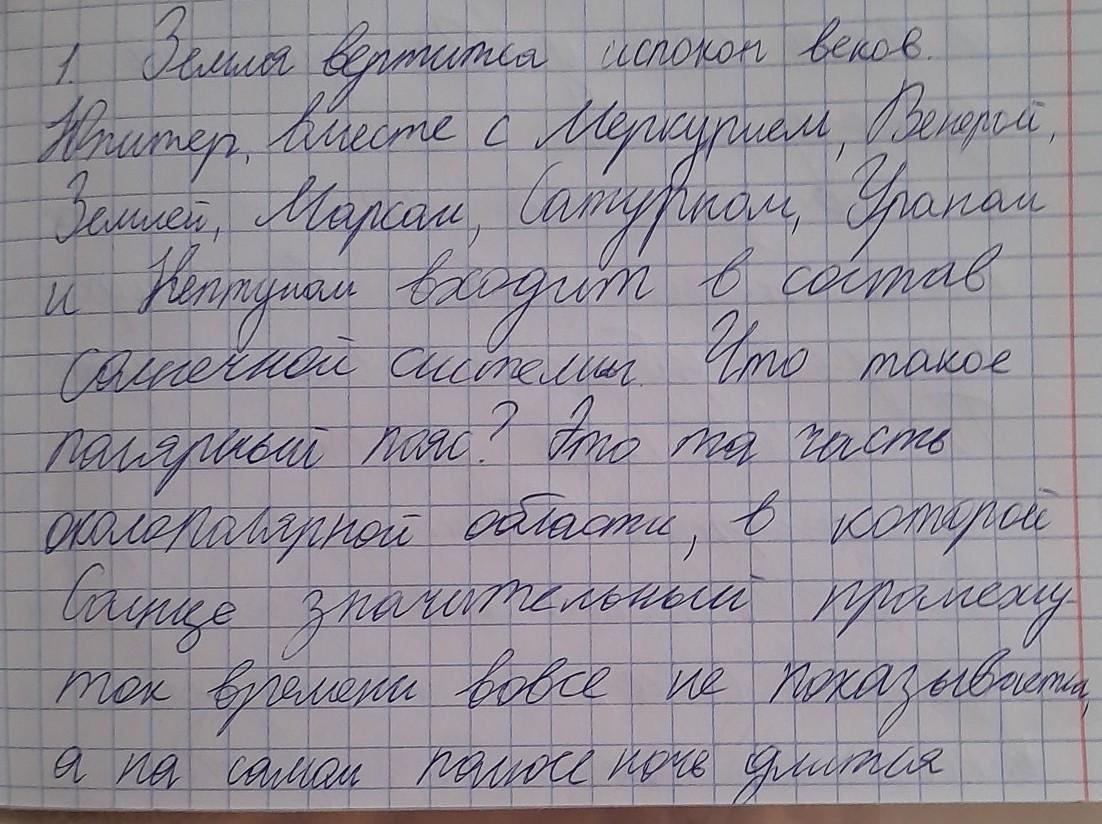 1. Земля вертится испокон веков.
Юпитер, вместе с Меркурием, Венерой,
Землей, Марсом, Сатурном, Ураном
и Нептуном входит в состав
Солнечной системы. Что такое
полярный пояс? Это та часть
околополярной области, в которой
Солнце значительный промежу-
ток времени вовсе не показывается,
а на самом полюсе ночь длится